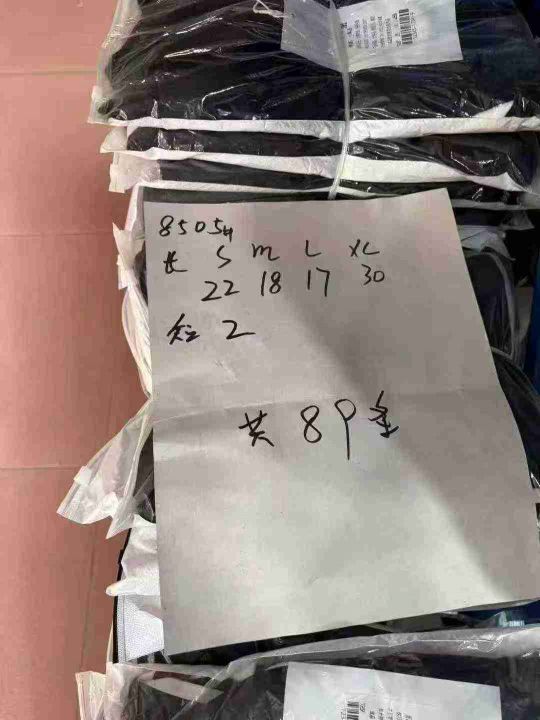 85054
长 S M L XL
22 18 17 30
短 2
共 89条